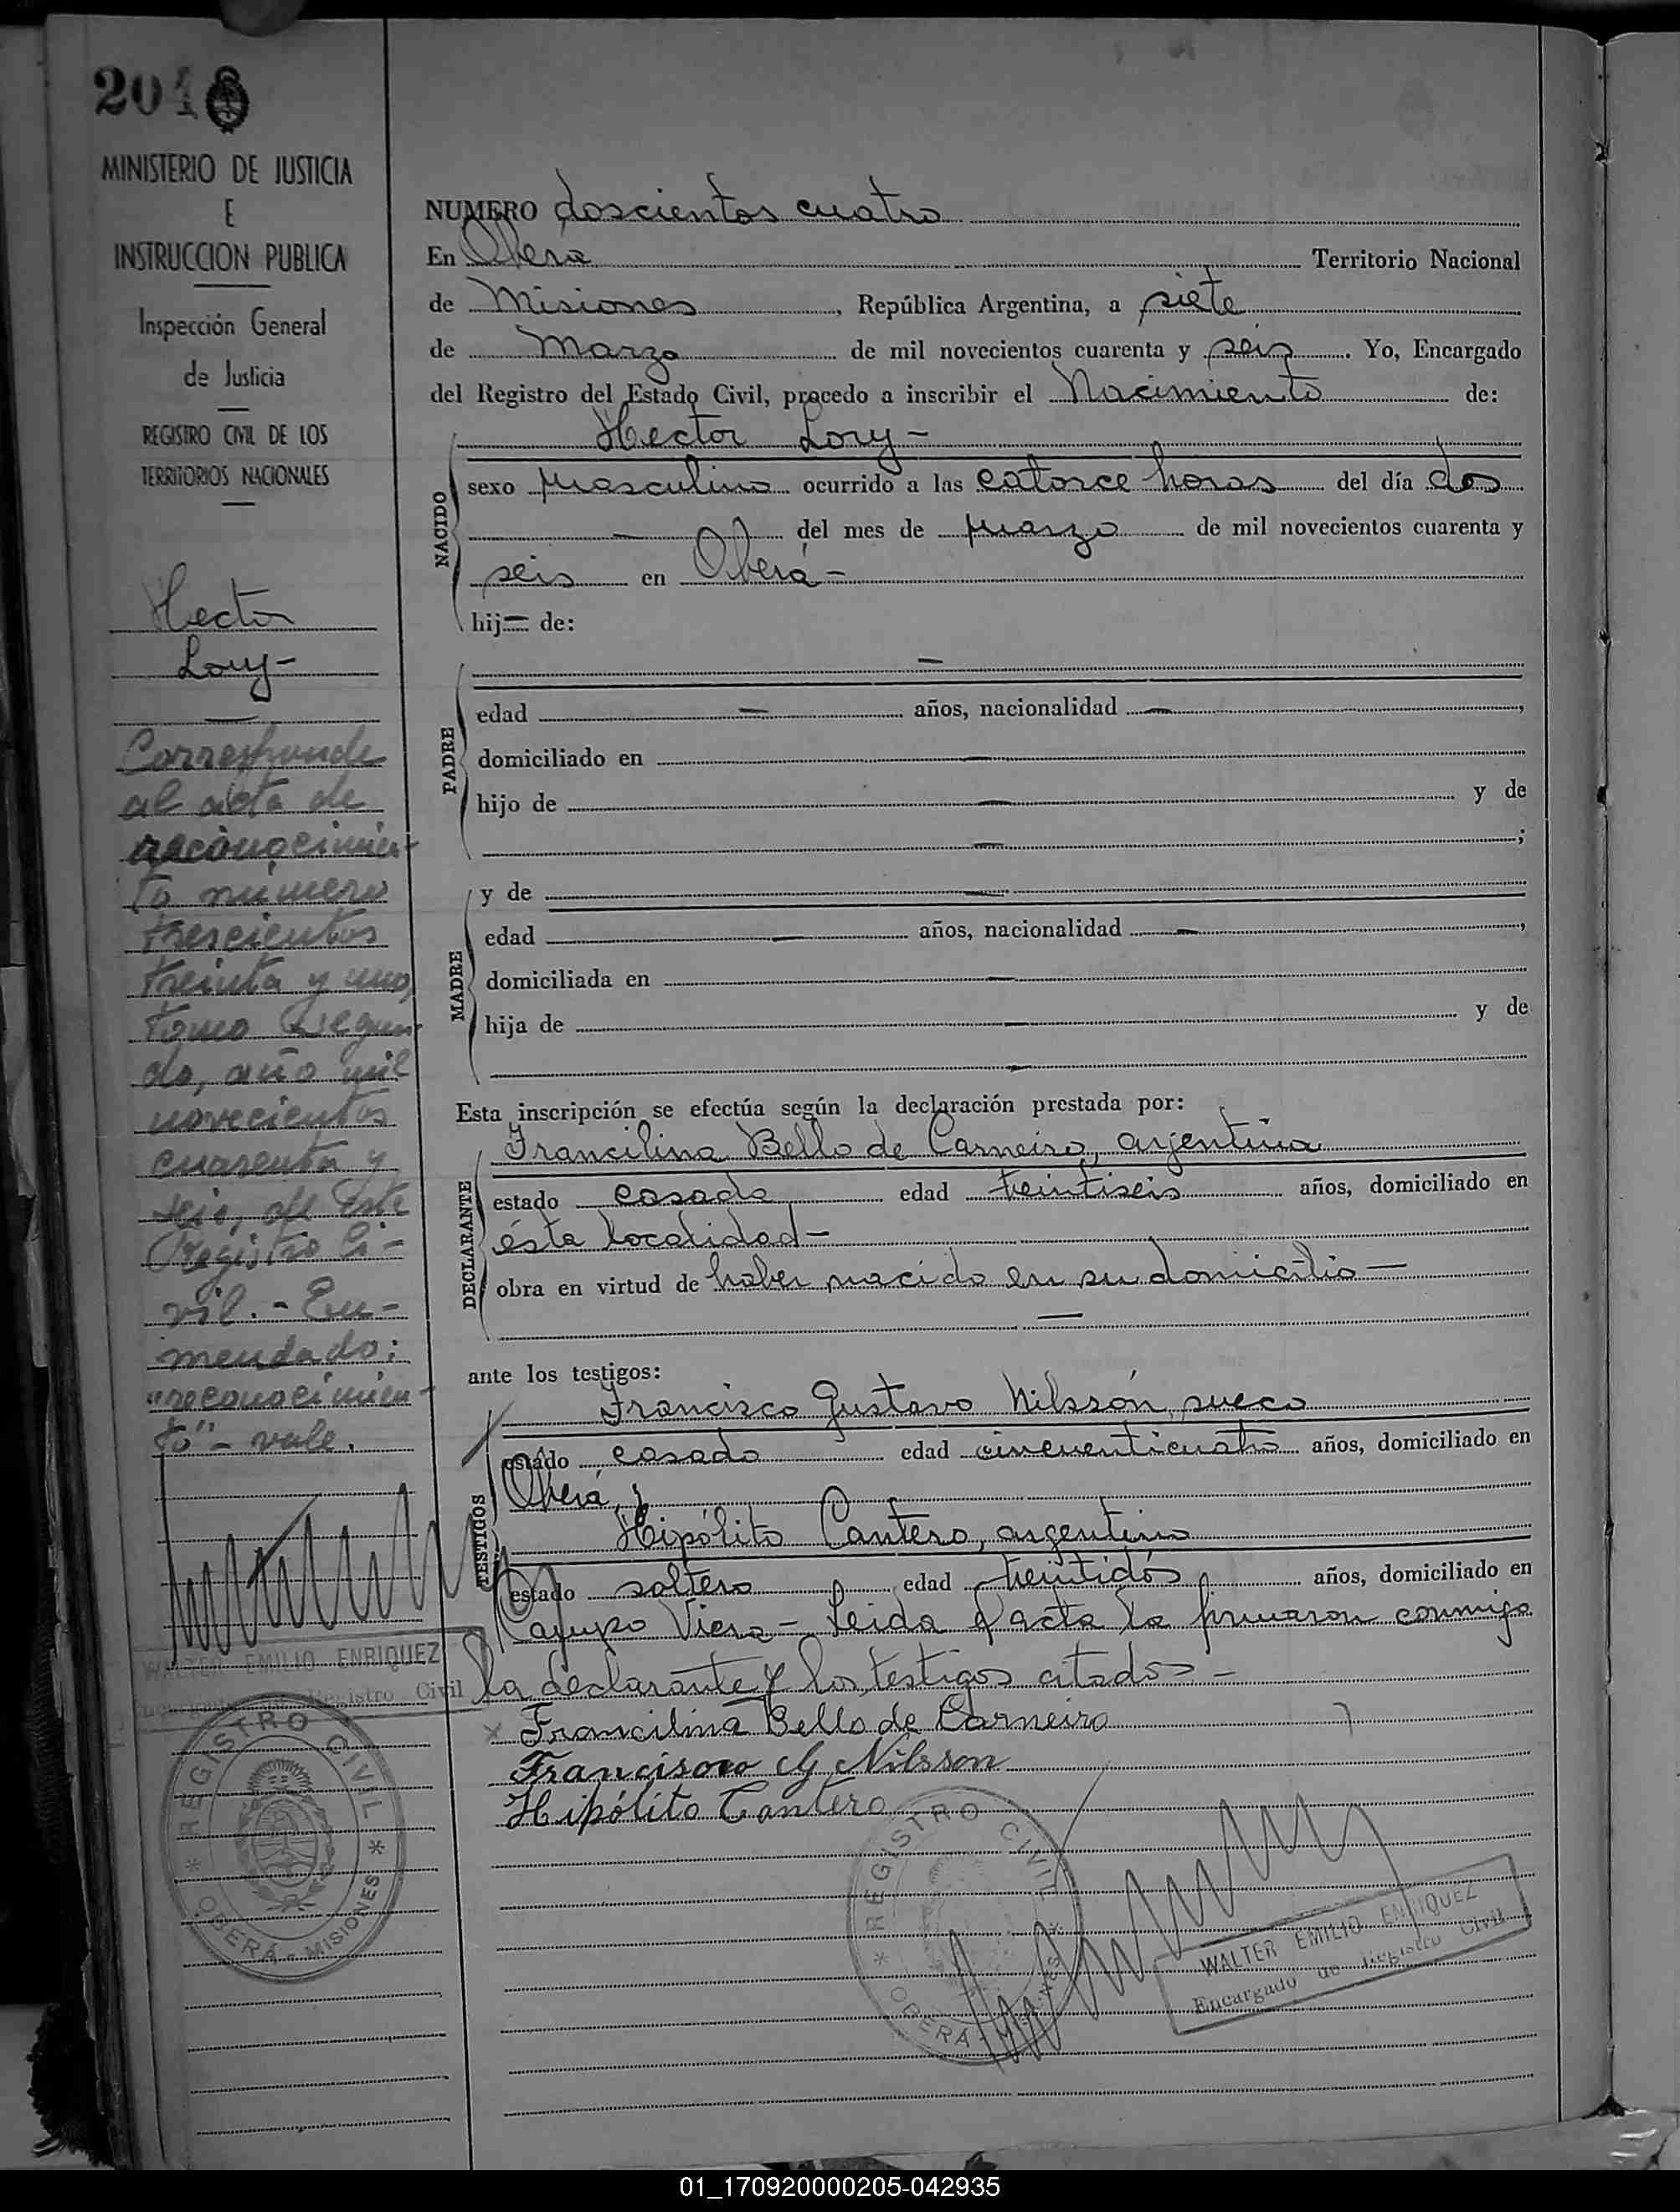 204
MINISTERIO DE JUSTICIA
E
INSTRUCCION PUBLICA
Inspección General
de Justicia
REGISTRO CIVIL DE LOS
TERRITORIOS NACIONALES
Hector
Lory-
Corresponde
al acta de
reconocimien-
to número
trescientos
treinta y uno,
tomo segun-
do, año mil
novecientos
cuarenta y
seis, de este
Registro Ci-
vil. - En-
mendado:
"reconocimien-
to" - vale.
WALTER EMILIO ENRIQUEZ
Registro Civil
REGISTRO CIVIL
* OBERÁ - MISIONES *
NUMERO doscientos cuatro
En Oberá Territorio Nacional
de Misiones, República Argentina, a siete
de Marzo de mil novecientos cuarenta y seis. Yo, Encargado
del Registro del Estado Civil, procedo a inscribir el Nacimiento de:
Hector Lory -
NACIDO
sexo masculino ocurrido a las catorce horas del día dos
— del mes de marzo de mil novecientos cuarenta y
seis en Oberá -
hij— de:
—
PADRE
edad — años, nacionalidad —,
domiciliado en —
hijo de — y de
—;
y de —
MADRE
edad — años, nacionalidad —,
domiciliada en —
hija de — y de
—
Esta inscripción se efectúa según la declaración prestada por:
Francilina Bello de Carneiro, argentina
DECLARANTE
estado casada edad treintiseis años, domiciliado en
ésta localidad -
obra en virtud de haber nacido en su domicilio —
—
ante los testigos:
Francisco Gustavo Nilssón, sueco
TESTIGOS
estado casado edad cincuenticuatro años, domiciliado en
Oberá, y
Hipólito Cantero, argentino
estado soltero edad treintidós años, domiciliado en
Campo Viera - Leida el acta la firmaron conmigo
la declarante y los testigos citados -
x Francilina Bello de Carneiro
Francisco G Nilsson
Hipólito Cantero
REGISTRO CIVIL
* OBERÁ
WALTER EMILIO ENRIQUEZ
Encargado de Registro Civil
01_170920000205-042935